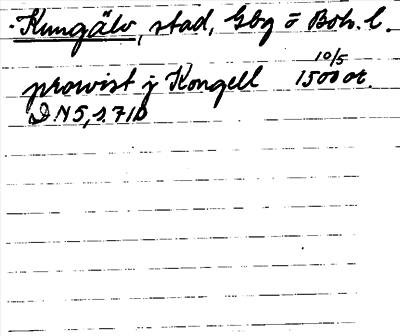 Kungälv, stad, Gbg o Boh. l.
10/5
prowist j Kongell 1500 or.
DN 5, s. 710